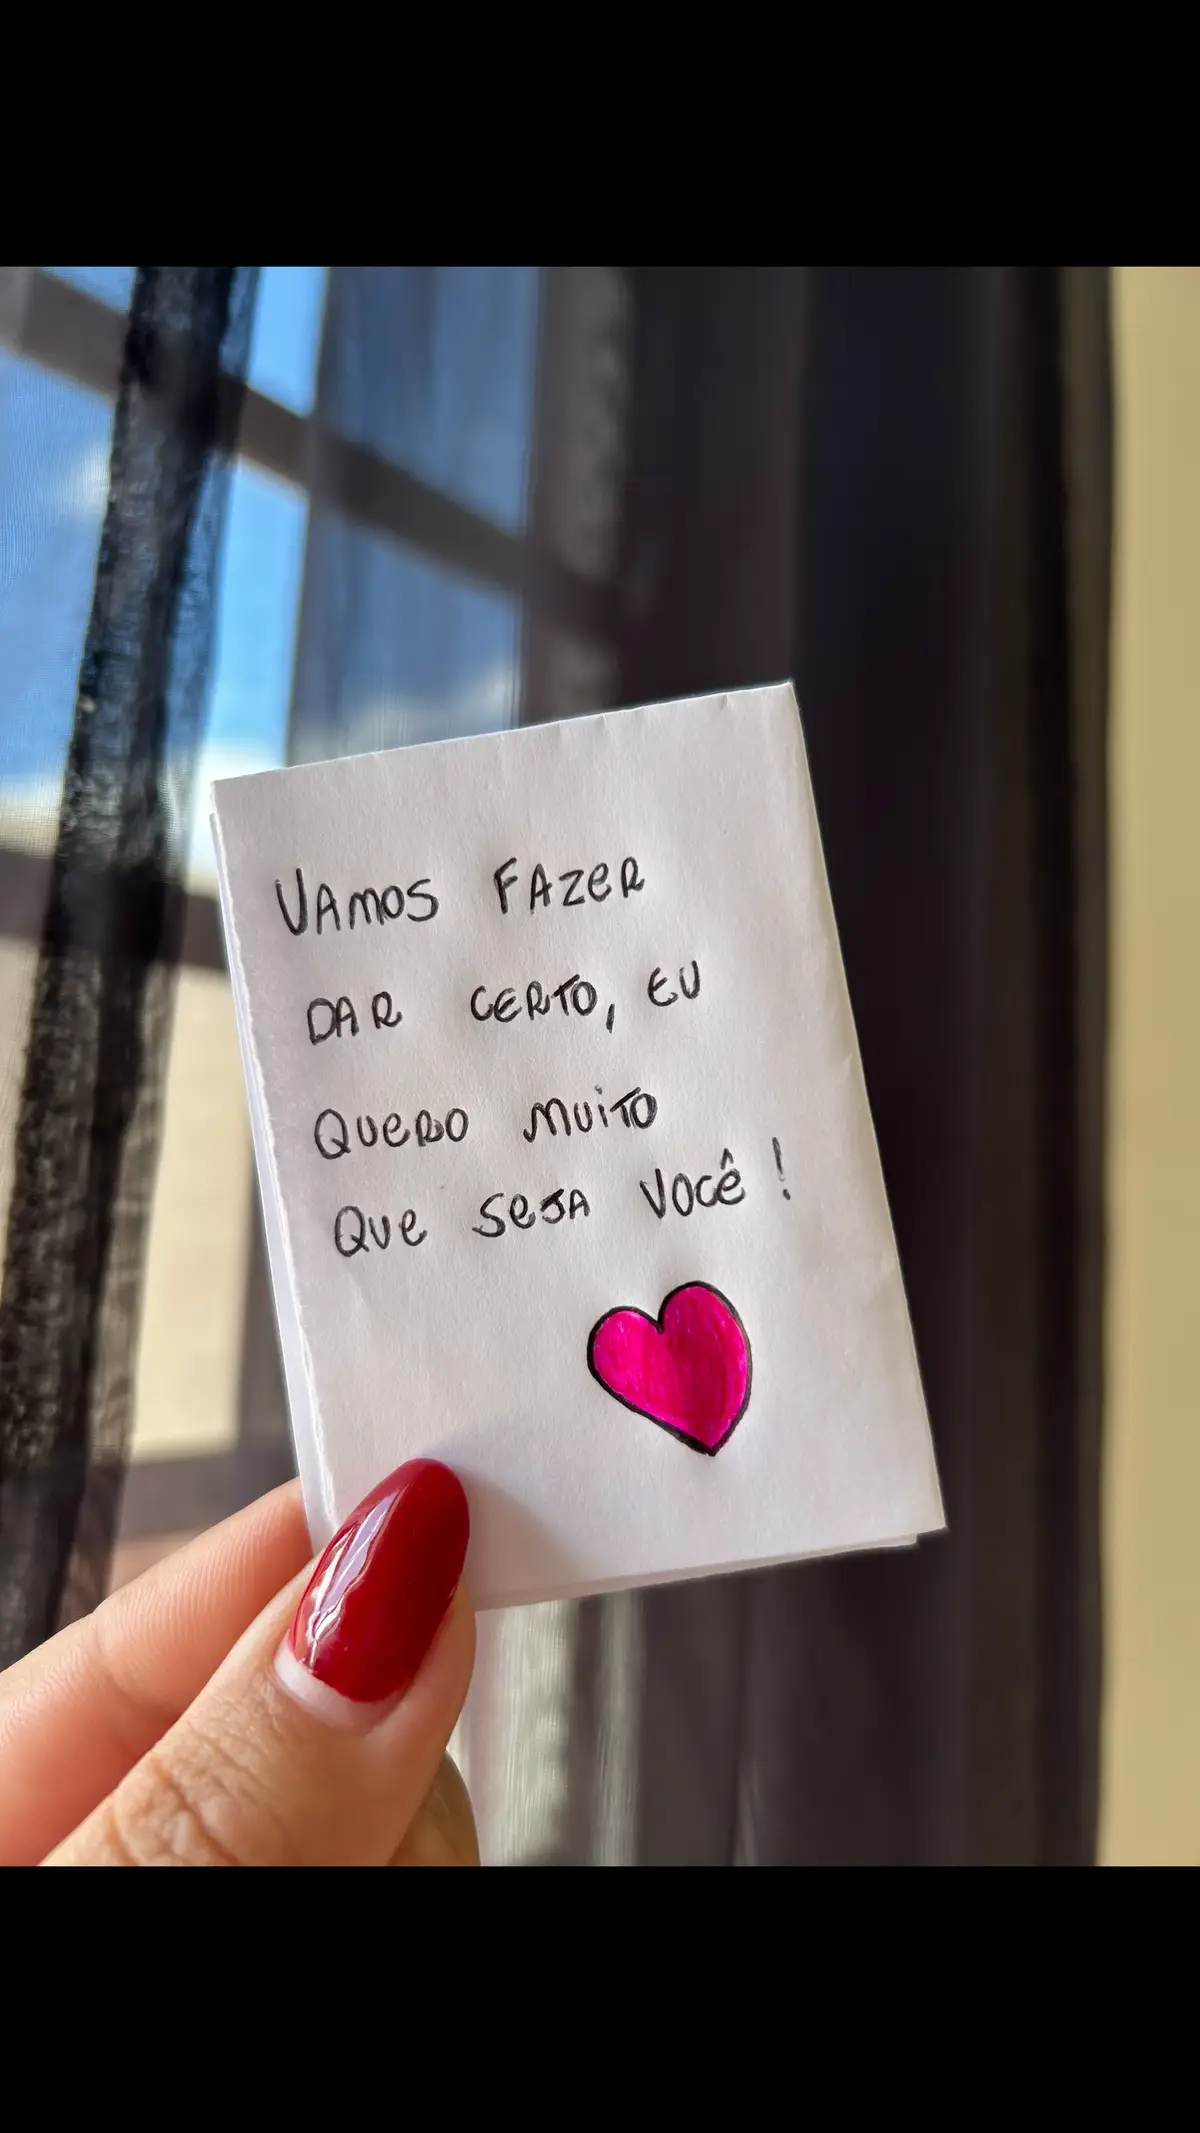 VAMOS FAZER
DAR CERTO, EU
QUERO MUITO
QUE SEJA VOCÊ!